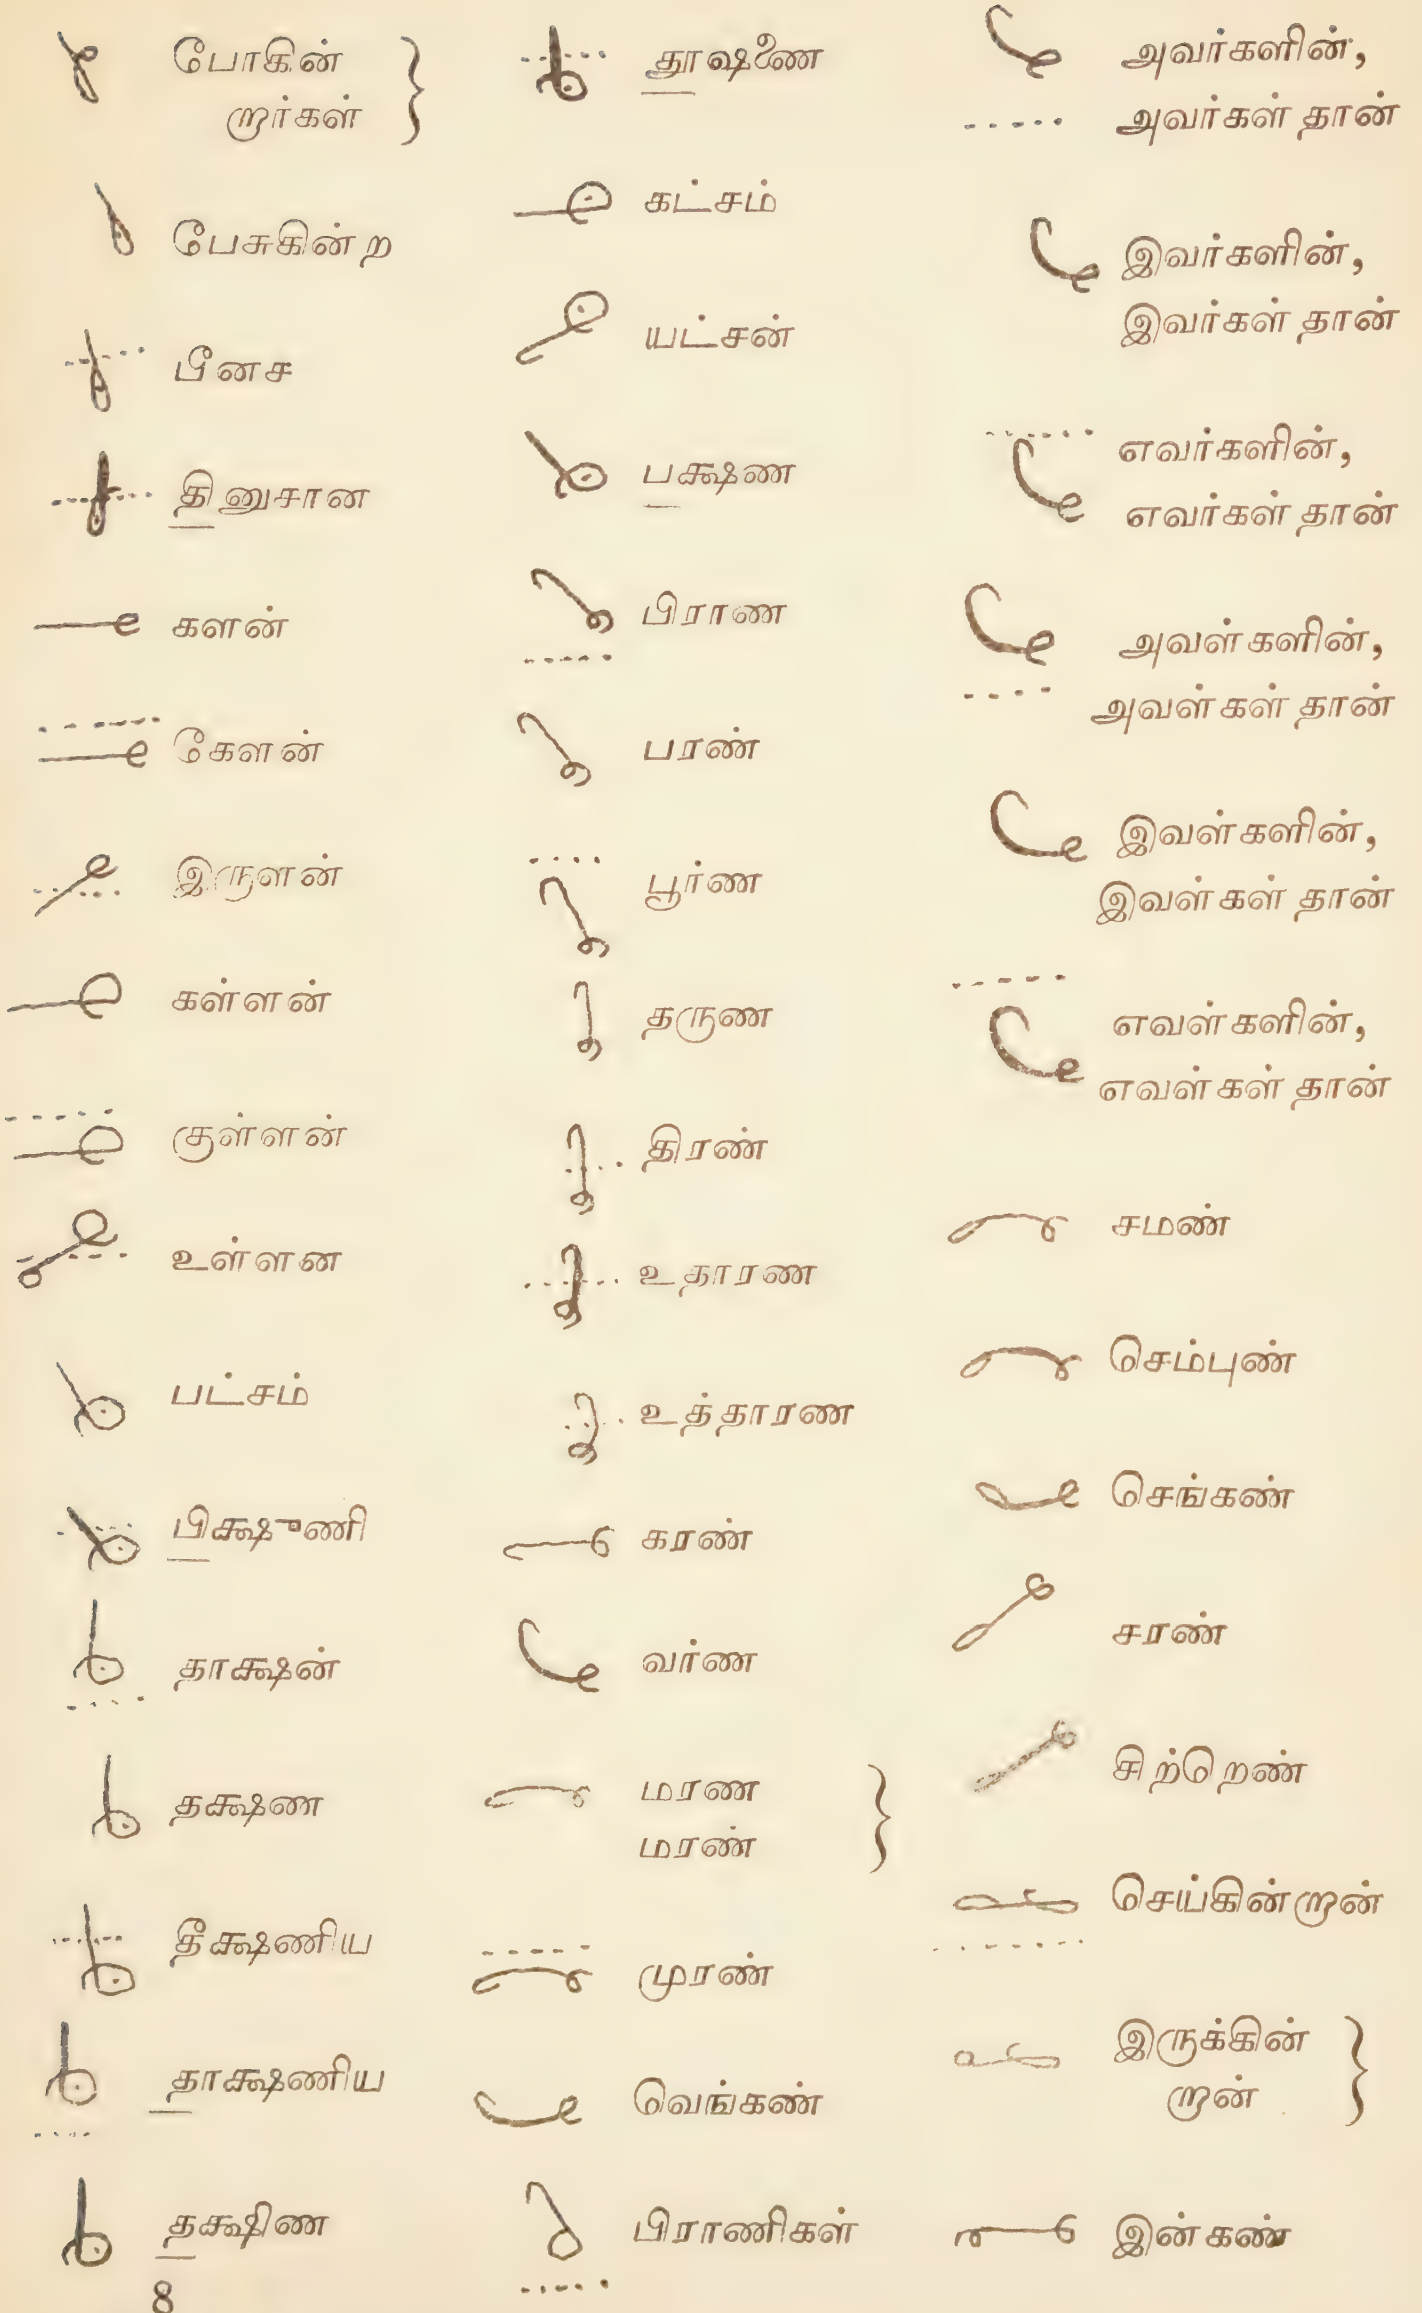 போகின்
றார்கள்
பேசுகின்ற
பீனச
தினுசான
களன்
கேளன்
இருளன்
கள்ளன்
குள்ளன்
உள்ளன
பட்சம்
பிக்ஷுணி
தாக்ஷன்
தக்ஷண
தீக்ஷணிய
தாக்ஷணிய
தக்ஷிண
8
தூஷணை
கட்சம்
யட்சன்
பக்ஷண
பிராண
பரண்
பூர்ண
தருண
திரண்
உதாரண
உத்தாரண
கரண்
வர்ண
மரண
மரண்
முரண்
வெங்கண்
பிராணிகள்
அவர்களின்,
அவர்கள் தான்
இவர்களின்,
இவர்கள் தான்
எவர்களின்,
எவர்கள் தான்
அவள்களின்,
அவள்கள் தான்
இவள்களின்,
இவள்கள் தான்
எவள்களின்,
எவள்கள் தான்
சமண்
செம்புண்
செங்கண்
சரண்
சிற்றெண்
செய்கின்றான்
இருக்கின்
றான்
இன்கண்